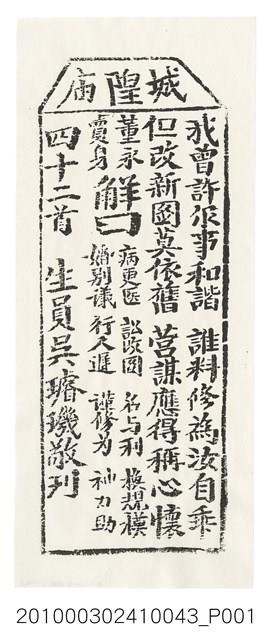 城隍庙
我曾許你事和諧 誰料修為汝自乖
但改新圖莫依舊 營謀應得稱心懷
董永
賣身
解曰
病更医 訟改圖 名与利 換規模
婚別議 行人遲 謹修为 神力助
四十二首 生員吳璿璣敬刊
201000302410043_P001